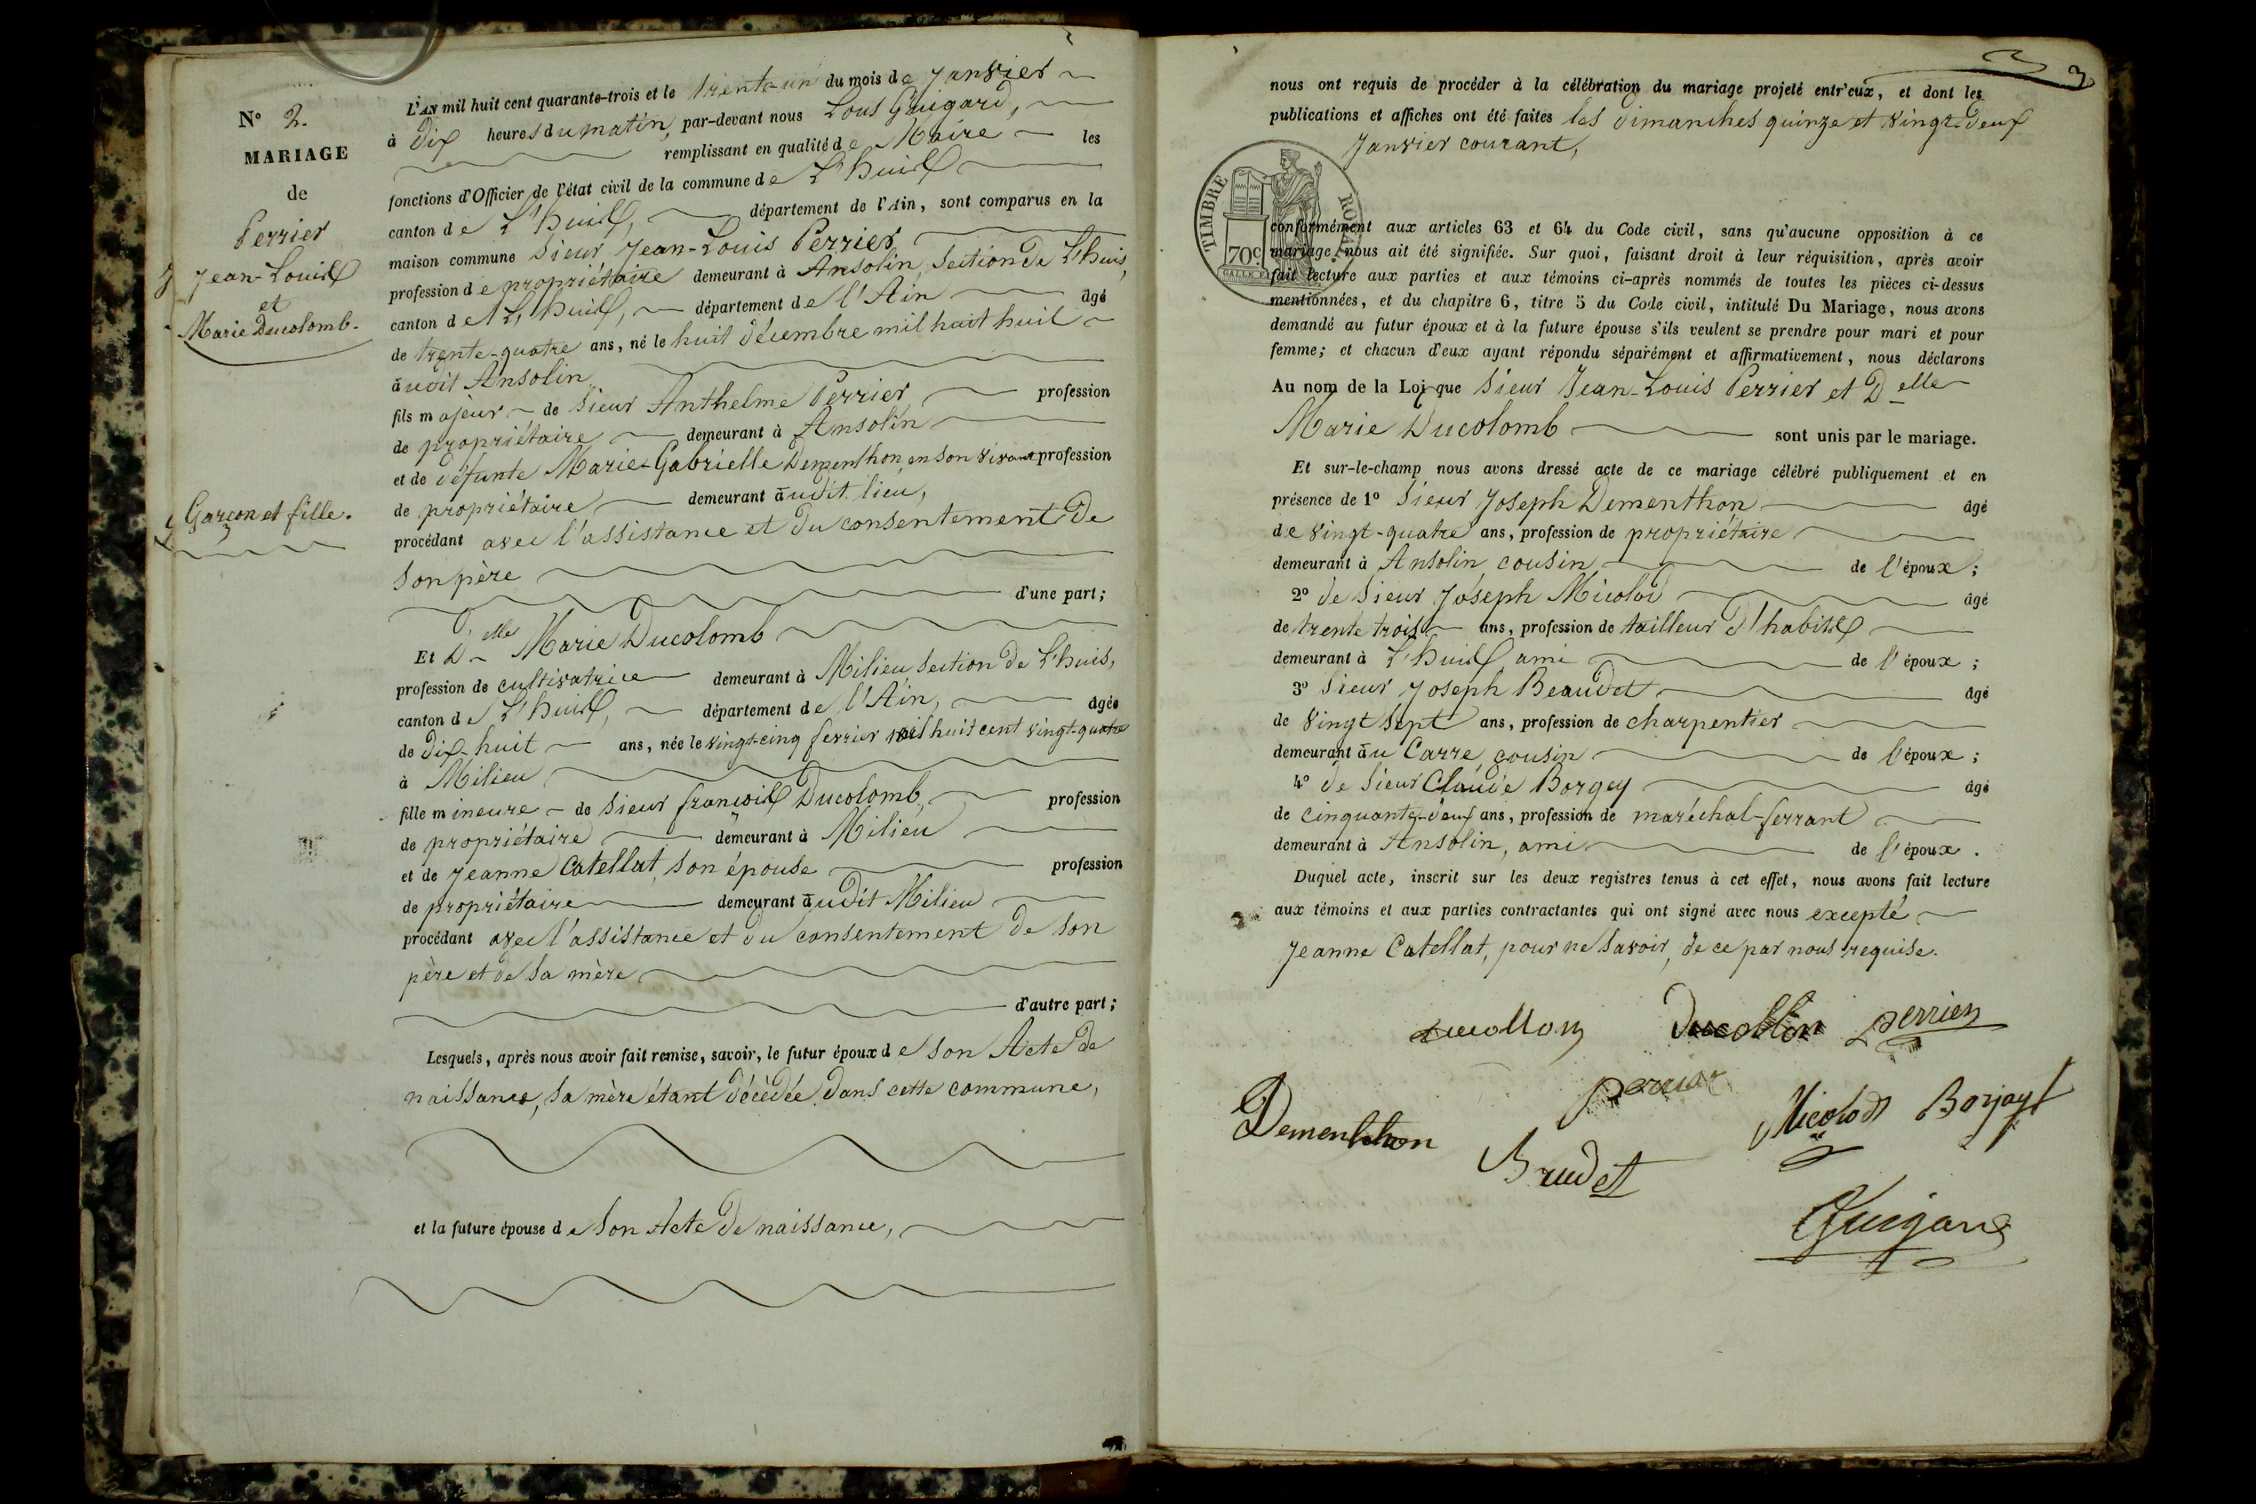 N° 2.
MARIAGE
de
Perrier
Jean-Louis
et
Marie Ducolomb.
Garçon et fille.
L'an mil huit cent quarante-trois et le trente-un du mois de Janvier
à dix heures du matin, par-devant nous Lous Guigard,
remplissant en qualité de Maire les
fonctions d'Officier de l'état civil de la commune de L'huis
canton de L'huis, département de l'Ain, sont comparus en la
maison commune Sieur Jean-Louis Perrier
profession de propriétaire demeurant à Ansolin, Section de L'huis,
canton de L'huis, département de l'Ain âgé
de trente-quatre ans, né le huit décembre mil huit huit
audit Ansolin
fils majeur de Sieur Anthelme Perrier profession
de propriétaire demeurant à Ansolin
et de défunte Marie-Gabrielle Dementhon, en son vivant profession
de propriétaire demeurant audit lieu,
procédant avec l'assistance et du consentement de
son père
d'une part;
Et Delle Marie Ducolomb
profession de cultivatrice demeurant à Milieu section de L'huis,
canton de L'huis, département de l'Ain, âgée
de dix-huit ans, née le vingt-cinq fevrier mil huit cent vingt-quatre
à Milieu
fille mineure de Sieur françois Ducolomb, profession
de propriétaire demeurant à Milieu
et de Jeanne Catellat, son épouse profession
de propriétaire demeurant audit Milieu
procédant avec l'assistance et du consentement de son
père et de sa mère
d'autre part;
Lesquels, après nous avoir fait remise, savoir, le futur époux de son Acte de
naissance, sa mère étant décédée dans cette commune,
et la future épouse de son Acte de naissance,
3
nous ont requis de procéder à la célébration du mariage projeté entr'eux, et dont les
publications et affiches ont été faites les dimanches quinze et vingt-deux
Janvier courant,
TIMBRE ROYAL
70c.
conformément aux articles 63 et 64 du Code civil, sans qu'aucune opposition à ce
mariage nous ait été signifiée. Sur quoi, faisant droit à leur réquisition, après avoir
fait lecture aux parties et aux témoins ci-après nommés de toutes les pièces ci-dessus
mentionnées, et du chapitre 6, titre 5 du Code civil, intitulé Du Mariage, nous avons
demandé au futur époux et à la future épouse s'ils veulent se prendre pour mari et pour
femme; et chacun d'eux ayant répondu séparément et affirmativement, nous déclarons
Au nom de la Loi que Sieur Jean-Louis Perrier et Delle
Marie Ducolomb sont unis par le mariage.
Et sur-le-champ nous avons dressé acte de ce mariage célébré publiquement et en
présence de 1° Sieur Joseph Dementhon âgé
de vingt-quatre ans, profession de propriétaire
demeurant à Ansolin cousin de l'époux;
2° de Sieur Joseph Micolod âgé
de trente trois ans, profession de tailleur d'habits
demeurant à L'huis, ami de l'époux;
3° Sieur Joseph Beaudet âgé
de vingt sept ans, profession de charpentier
demeurant au Carre, cousin de l'époux;
4° de Sieur Claude Borgey âgé
de cinquante-deux ans, profession de maréchal-ferrant
demeurant à Ansolin, ami de l'époux.
Duquel acte, inscrit sur les deux registres tenus à cet effet, nous avons fait lecture
aux témoins et aux parties contractantes qui ont signé avec nous excepté
Jeanne Catellat, pour ne savoir, de ce par nous requise.
Ducoblon perrier
perrier
Dementhon Micolod Borjayt
Brudet
Guigard